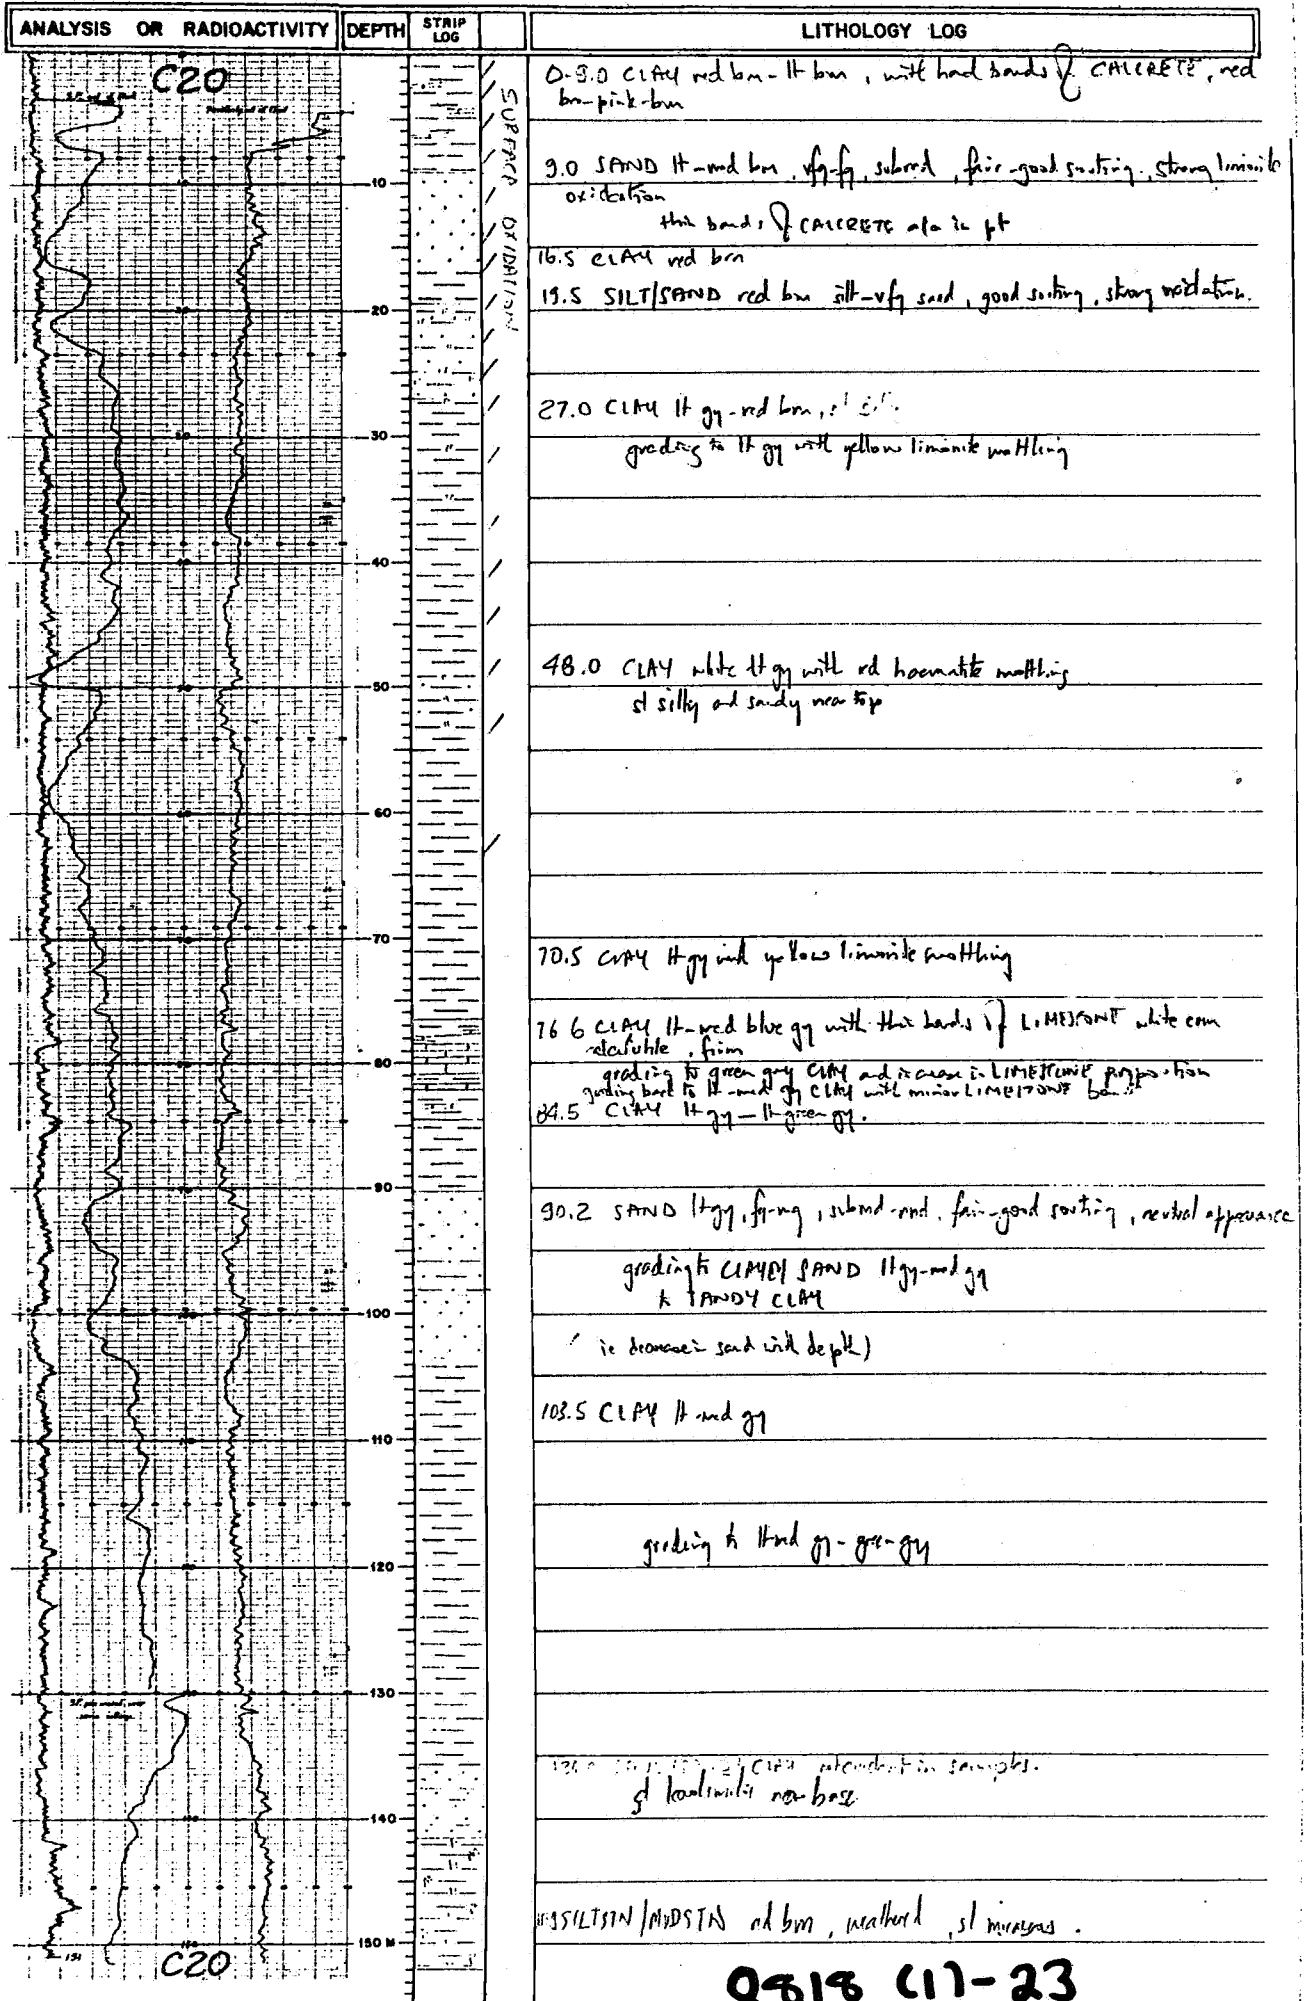 ANALYSIS OR RADIOACTIVITY DEPTH STRIP LOG LITHOLOGY LOG
C20
SURFACE OXIDATION
0-9.0 CLAY red brn-lt brn, with hard bands of CALCRETE, red
brn-pink-brn
9.0 SAND lt-med brn, vfg-fg, subrnd, fair-good sorting, strong limonite
oxidation
thin bands of CALCRETE a/a in pt
10
16.5 CLAY red brn
19.5 SILT/SAND red brn silt-vfg sand, good sorting, strong oxidation.
20
27.0 CLAY lt gy-red brn, sl
30
grading to lt gy with yellow limonite mottling
40
48.0 CLAY white lt gy with red haematite mottling
50
sl silty and sandy near top
60
70
70.5 CLAY lt gy with yellow limonite mottling
76.6 CLAY lt-med blue gy with thin bands of LIMESTONE white crm
, firm
80
grading to green grey CLAY and increase in LIMESTONE proportion
grading back to lt-med gy CLAY with minor LIMESTONE
84.5 CLAY lt gy-lt green gy.
90
90.2 SAND lt gy, fg-mg, subrnd-rnd, fair-good sorting, neutral appearance
grading to CLAYEY SAND lt gy-med gy
to SANDY CLAY
100
ie decrease in sand with depth)
103.5 CLAY lt-med gy
110
grading to lt med gy-green-gy
120
130
CLAY in samples.
sl near base
140
SILTSTN/MUDSTN red brn, weathered, sl micaceous.
150 M
151
C20
0818 (1)-23